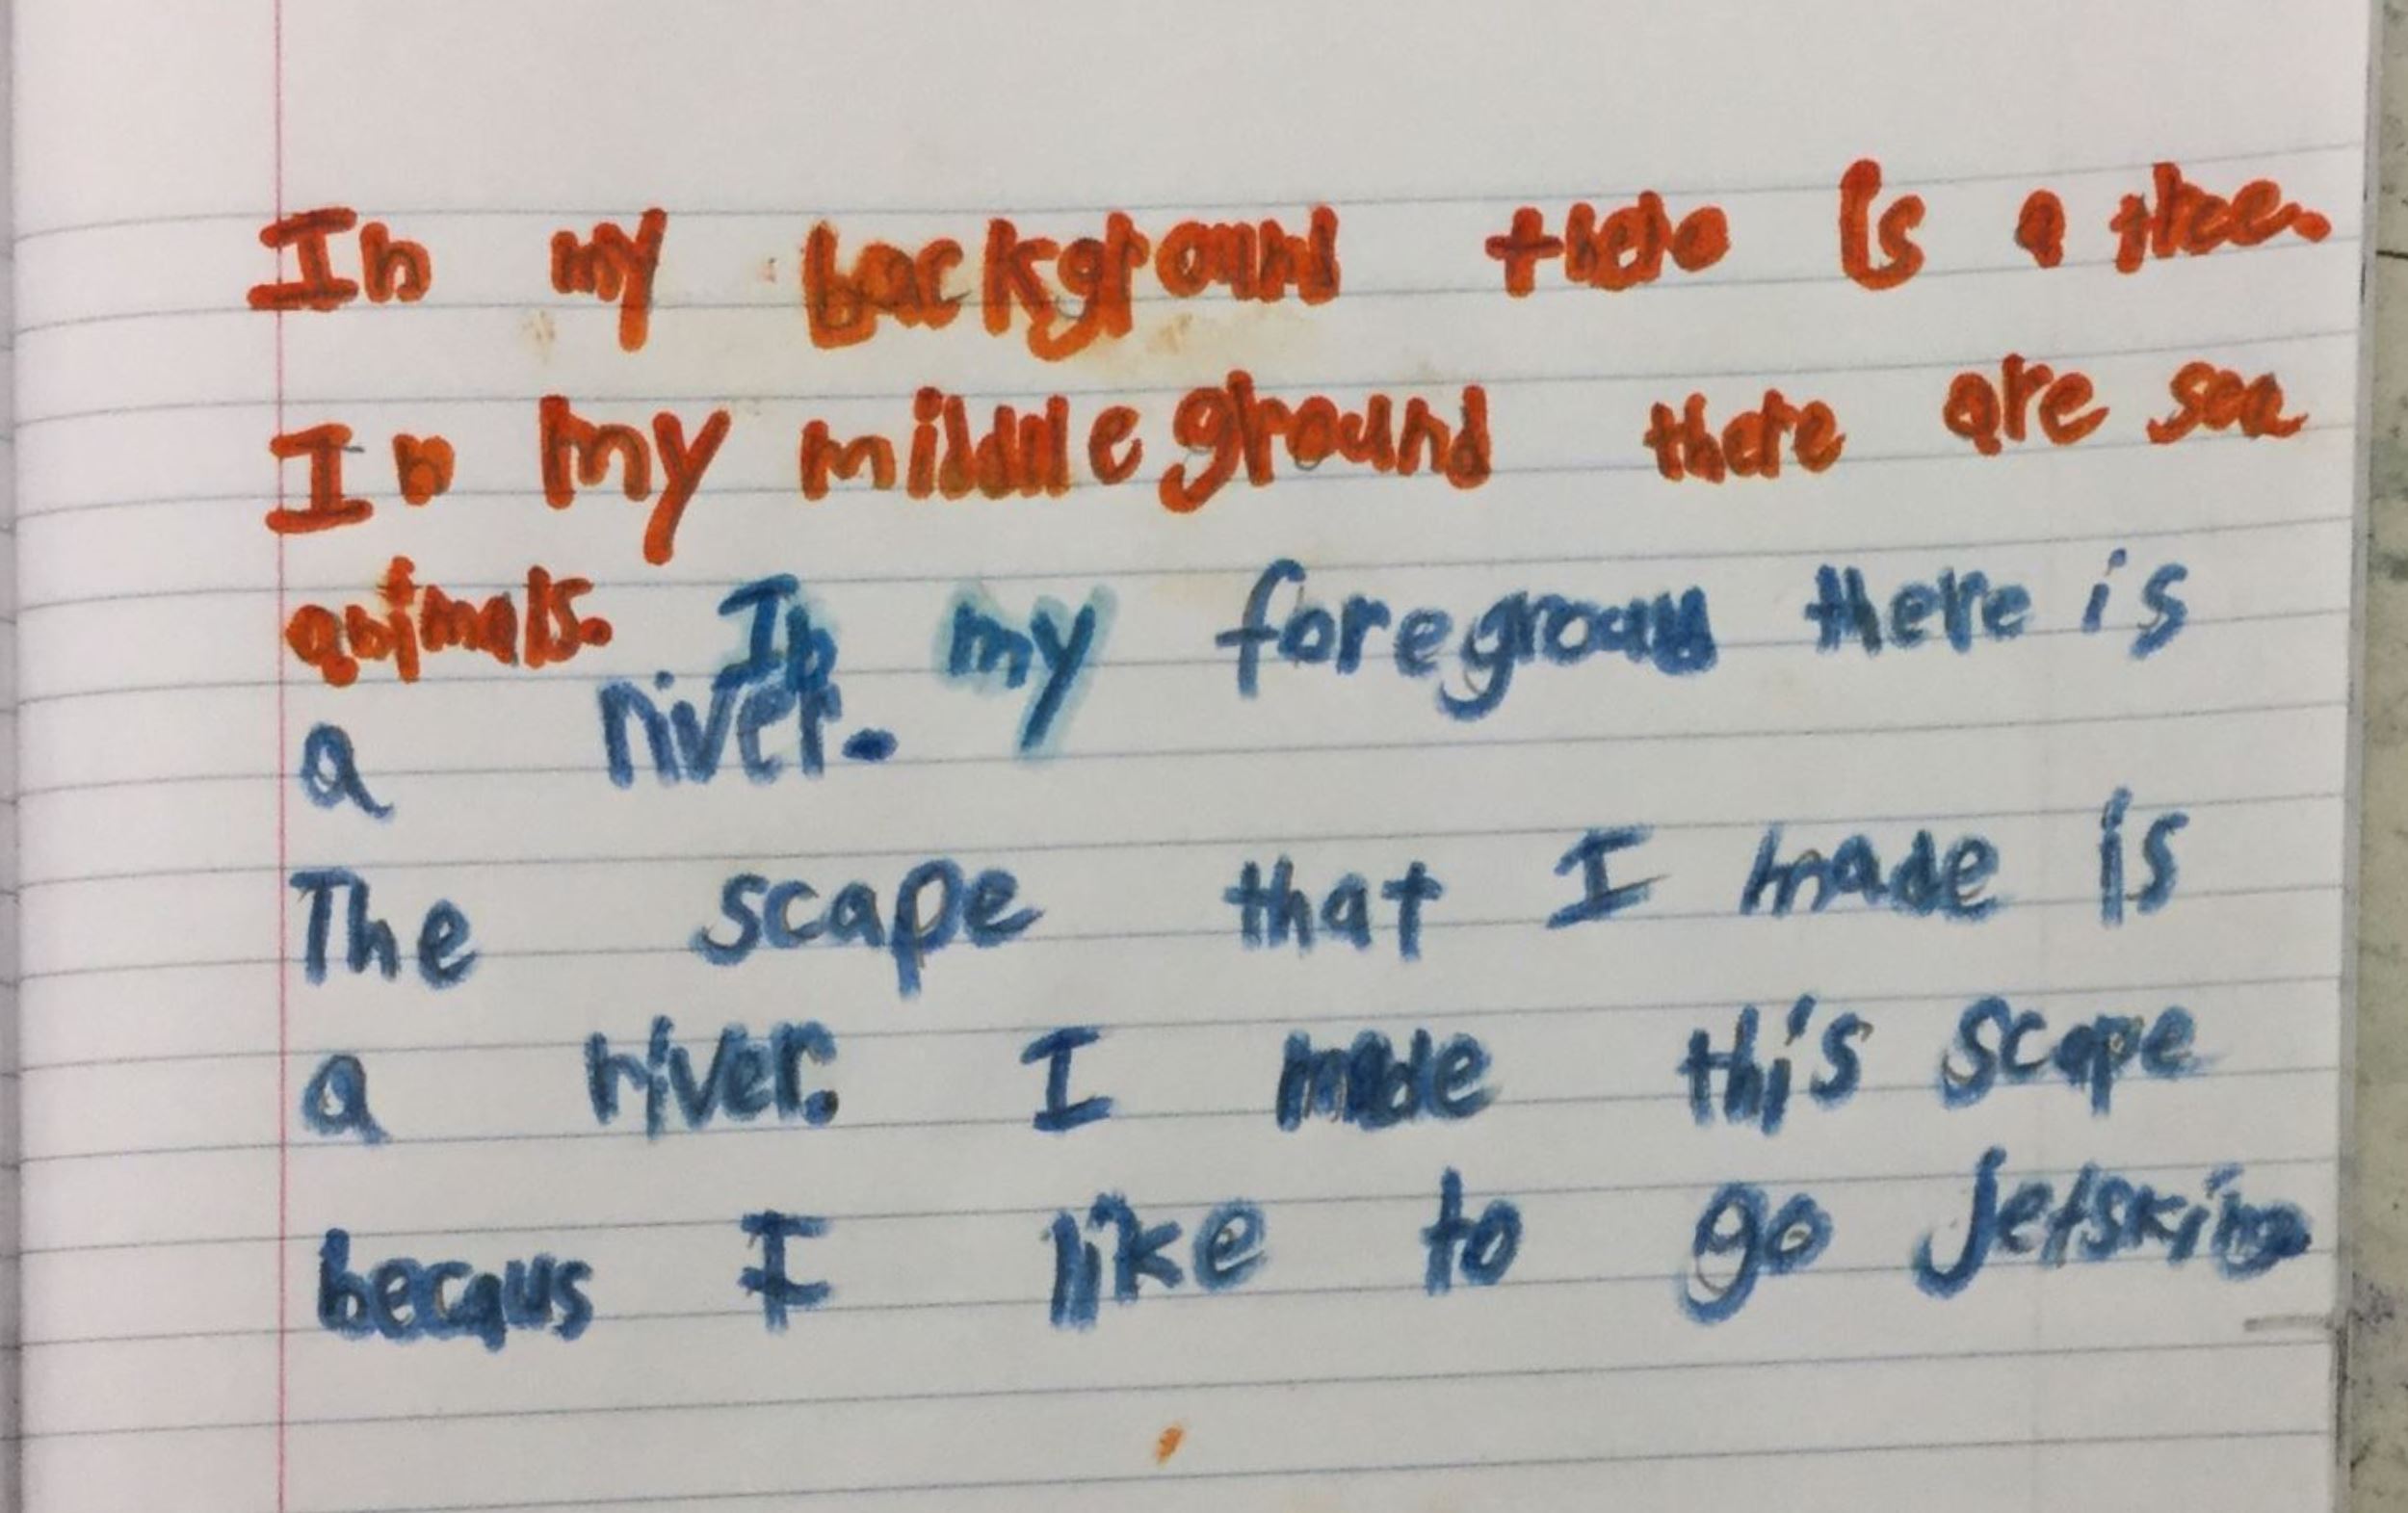 In my background there is a tree.
In my middle ground there are sea
animals. In my foreground there is
a river.
The scape that I made is
a river. I made this scape
becaus I like to go jetskiing